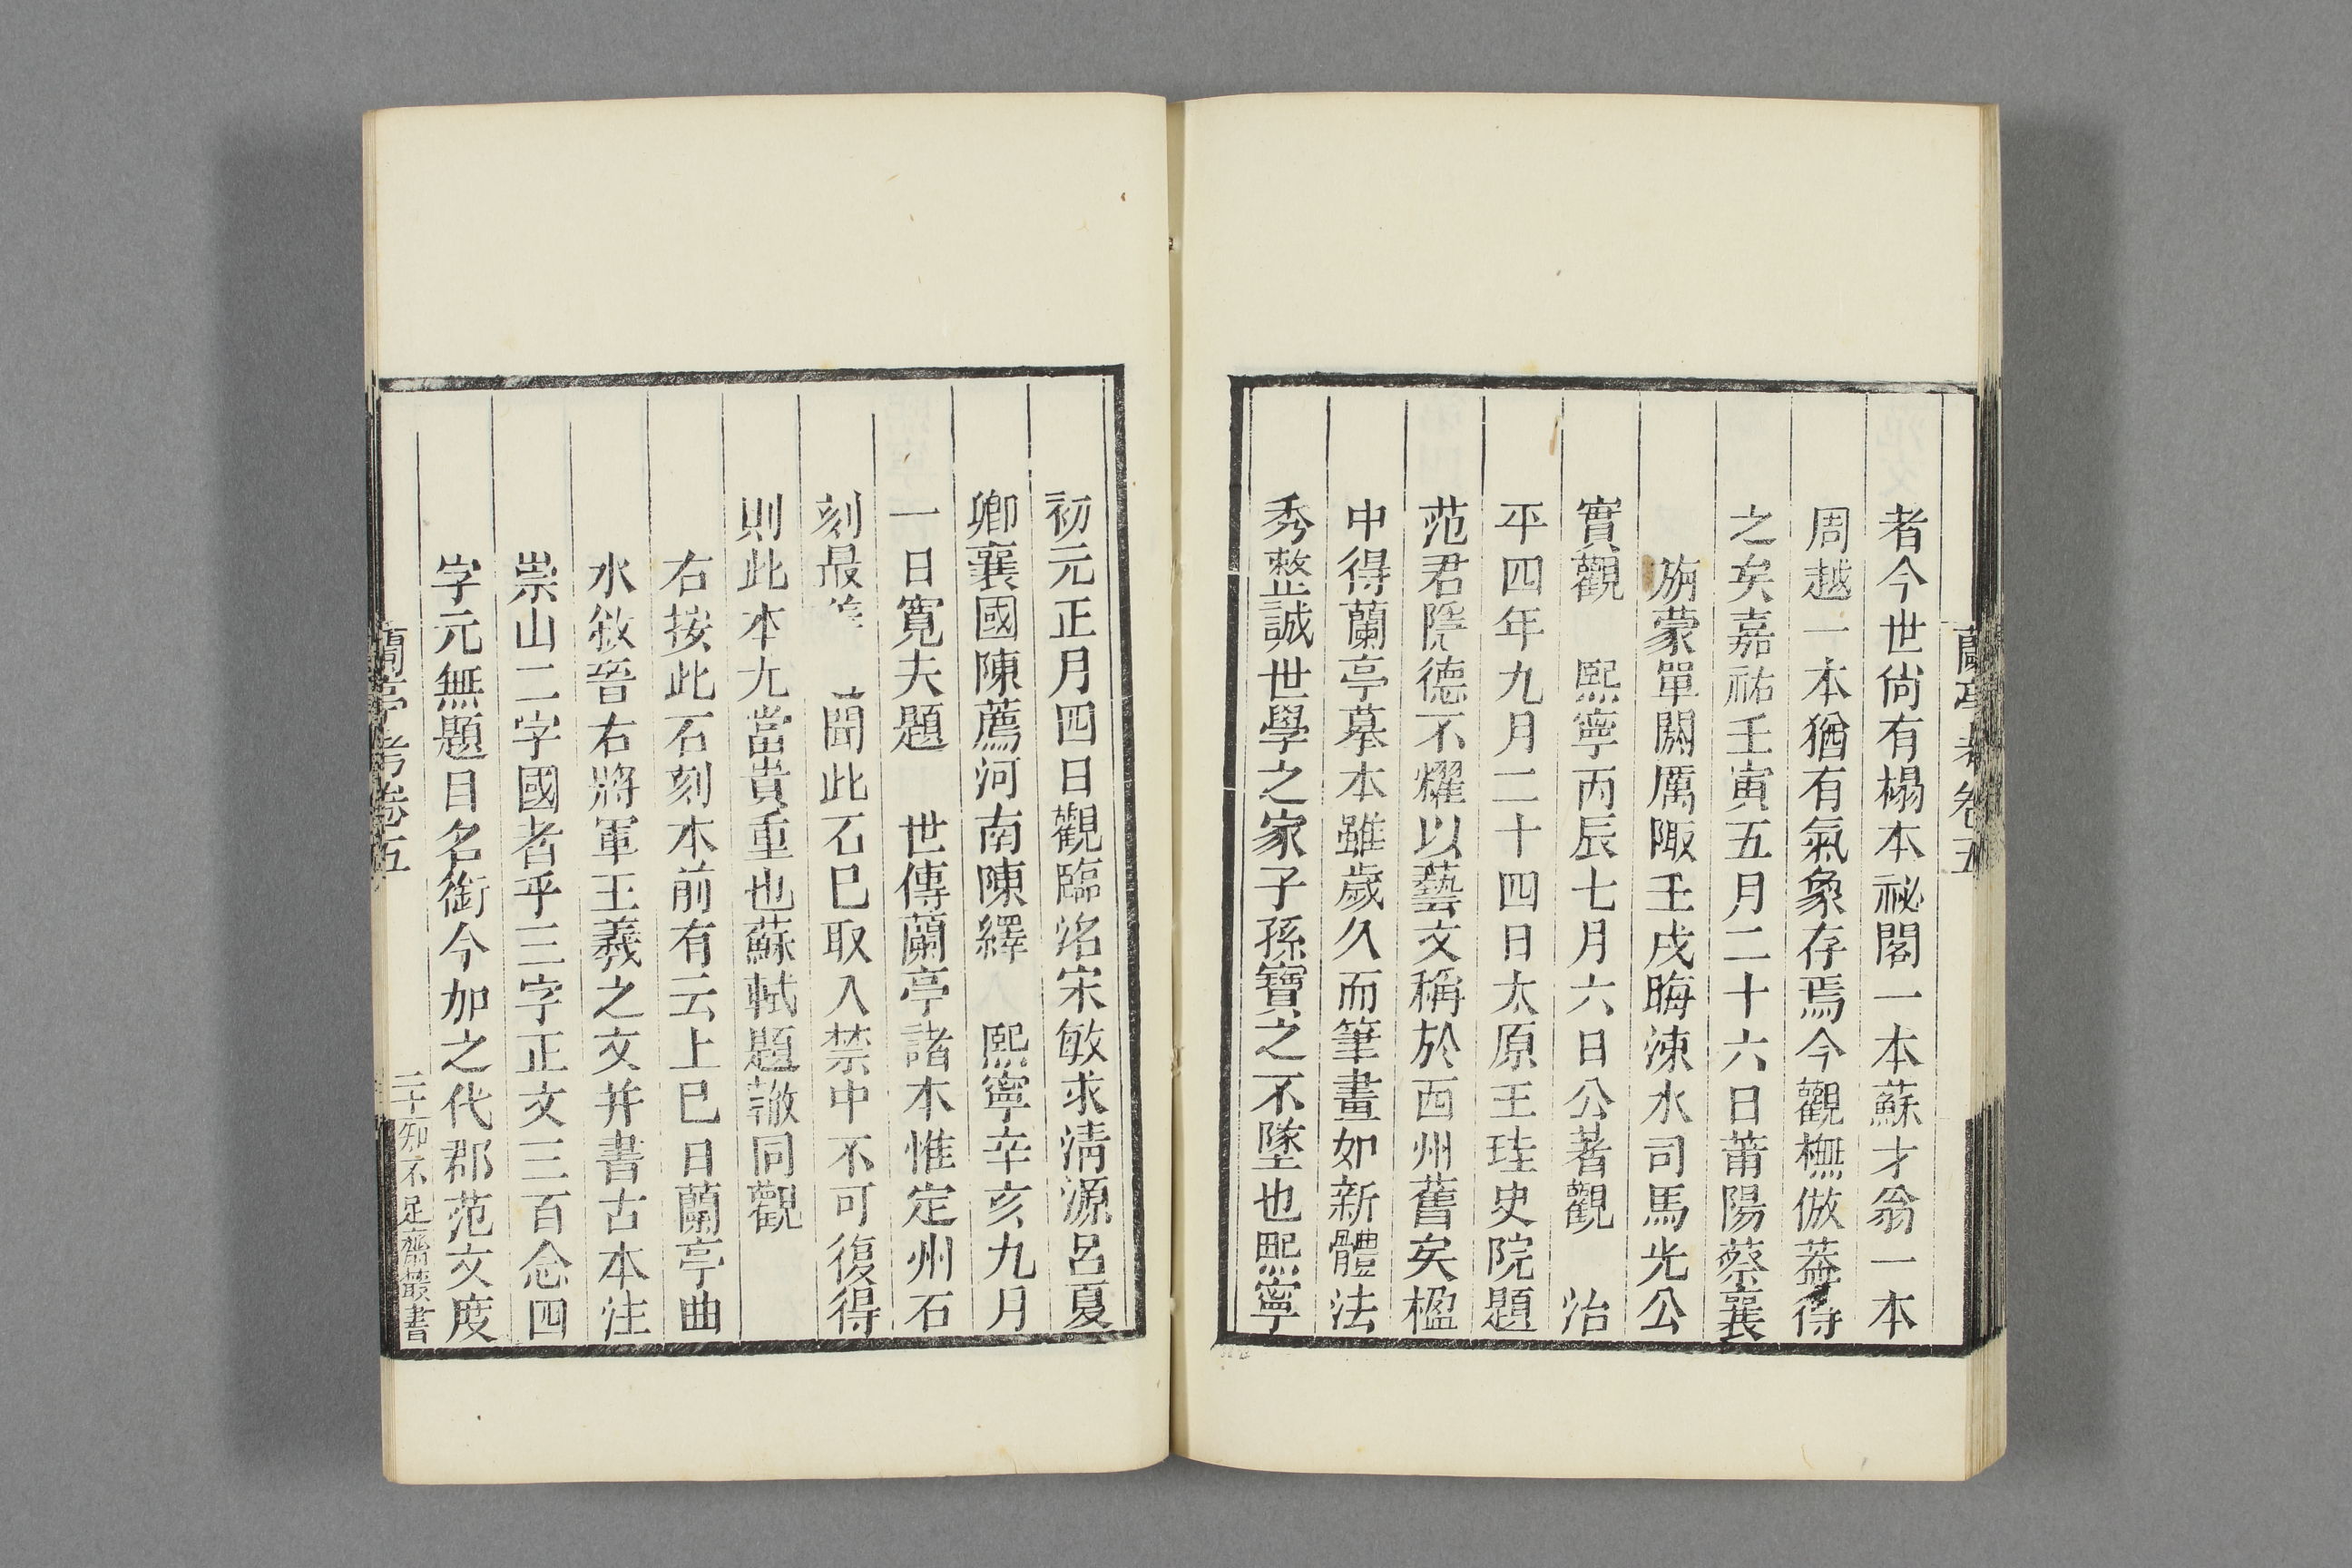 蘭亭考卷五
者今世尙有榻本祕閣一本蘇才翁一本
周越一本猶有氣象存焉今觀橅倣葢得
之矣嘉祐壬寅五月二十六日莆陽蔡襄
旃蒙單閼厲陬壬戌晦涑水司馬光公
實觀 熙寧丙辰七月六日公著觀 治
平四年九月二十四日太原王珪史院題
范君隱德不燿以藝文稱於西州舊矣楹
中得蘭亭摹本雖歲久而筆畫如新體法
秀整誠世學之家子孫寶之不墜也熙寧
初元正月四日觀臨洺宋敏求淸源呂夏
卿襄國陳薦河南陳繹 熙寧辛亥九月
一日寬夫題 世傳蘭亭諸本惟定州石
刻最 聞此石已取入禁中不可復得
則此本尤當貴重也蘇軾題轍同觀
右按此石刻本前有云上巳日蘭亭曲
水敘晉右將軍王羲之文并書古本注
崇山二字國者乎三字正文三百念四
字元無題目名銜今加之代郡范文度
蘭亭考卷五
二十 知不足齋叢書